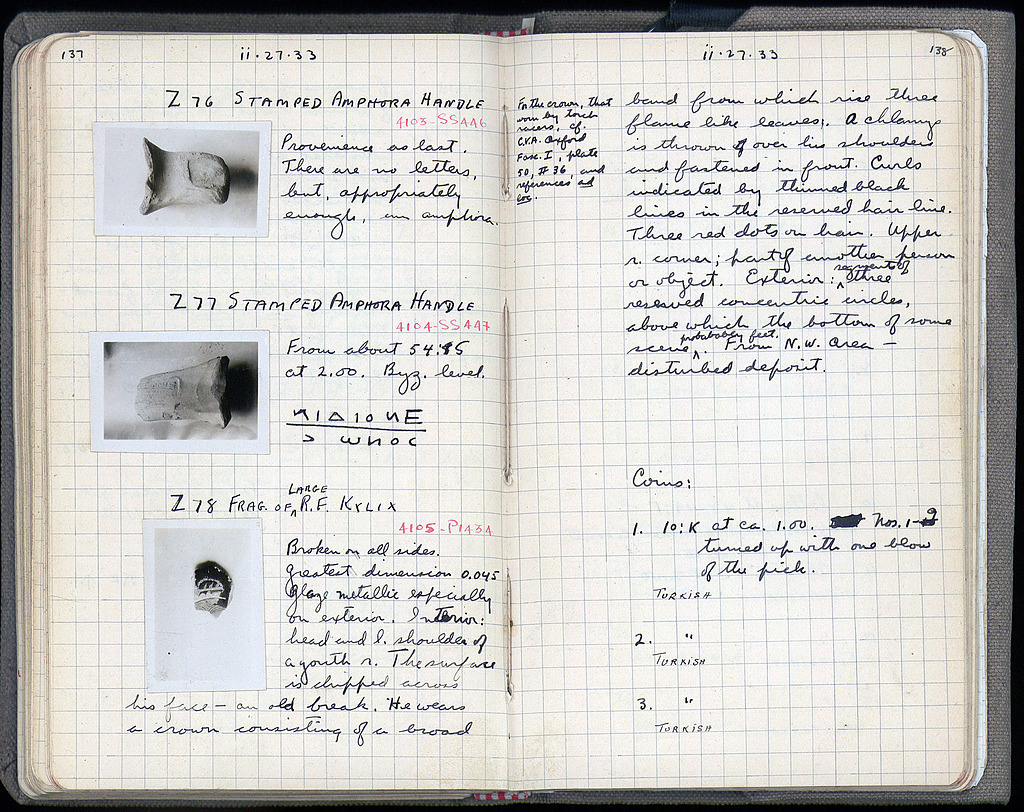 137
ii·27·33
Z 76 STAMPED AMPHORA HANDLE
4103-SS446
Provenience as last.
There are no letters,
but, appropriately
enough, an amphora.
Z 77 STAMPED AMPHORA HANDLE
4104-SS447
From about 54:
at 2.00. Byz. level.
ИΙΔΙΟИΕ
ωИΟC
LARGE
Z 78 FRAG. OF ^ R.F. KYLIX
4105-P1434
Broken on all sides.
Greatest dimension 0.045
Glaze metallic especially
on exterior. Interior:
head and l. shoulder of
a youth r. The surface
is chipped across
his face — an old break. He wears
a crown consisting of a broad
ii·27·33
138
For the crown, that
worn by torch
racers, cf.
C.V.A. Oxford
Fasc. I, plate
50, # 36, and
references ad
loc.
band from which rise three
flame like leaves. A chlamys
is thrown over his shoulders
and fastened in front. Curls
indicated by thinned black
lines in the reserved hair line.
Three red dots on hair. Upper
r. corner; part of another person
segments of
or object. Exterior: ^ three
reserved concentric circles,
above which the bottom of some
probably feet.
scene ^. From N.W. Area —
disturbed deposit.
Coins:
1. 10:K at ca. 1.00. Nos. 1-9
turned up with one blow
of the pick.
TURKISH
2. "
TURKISH
3. "
TURKISH